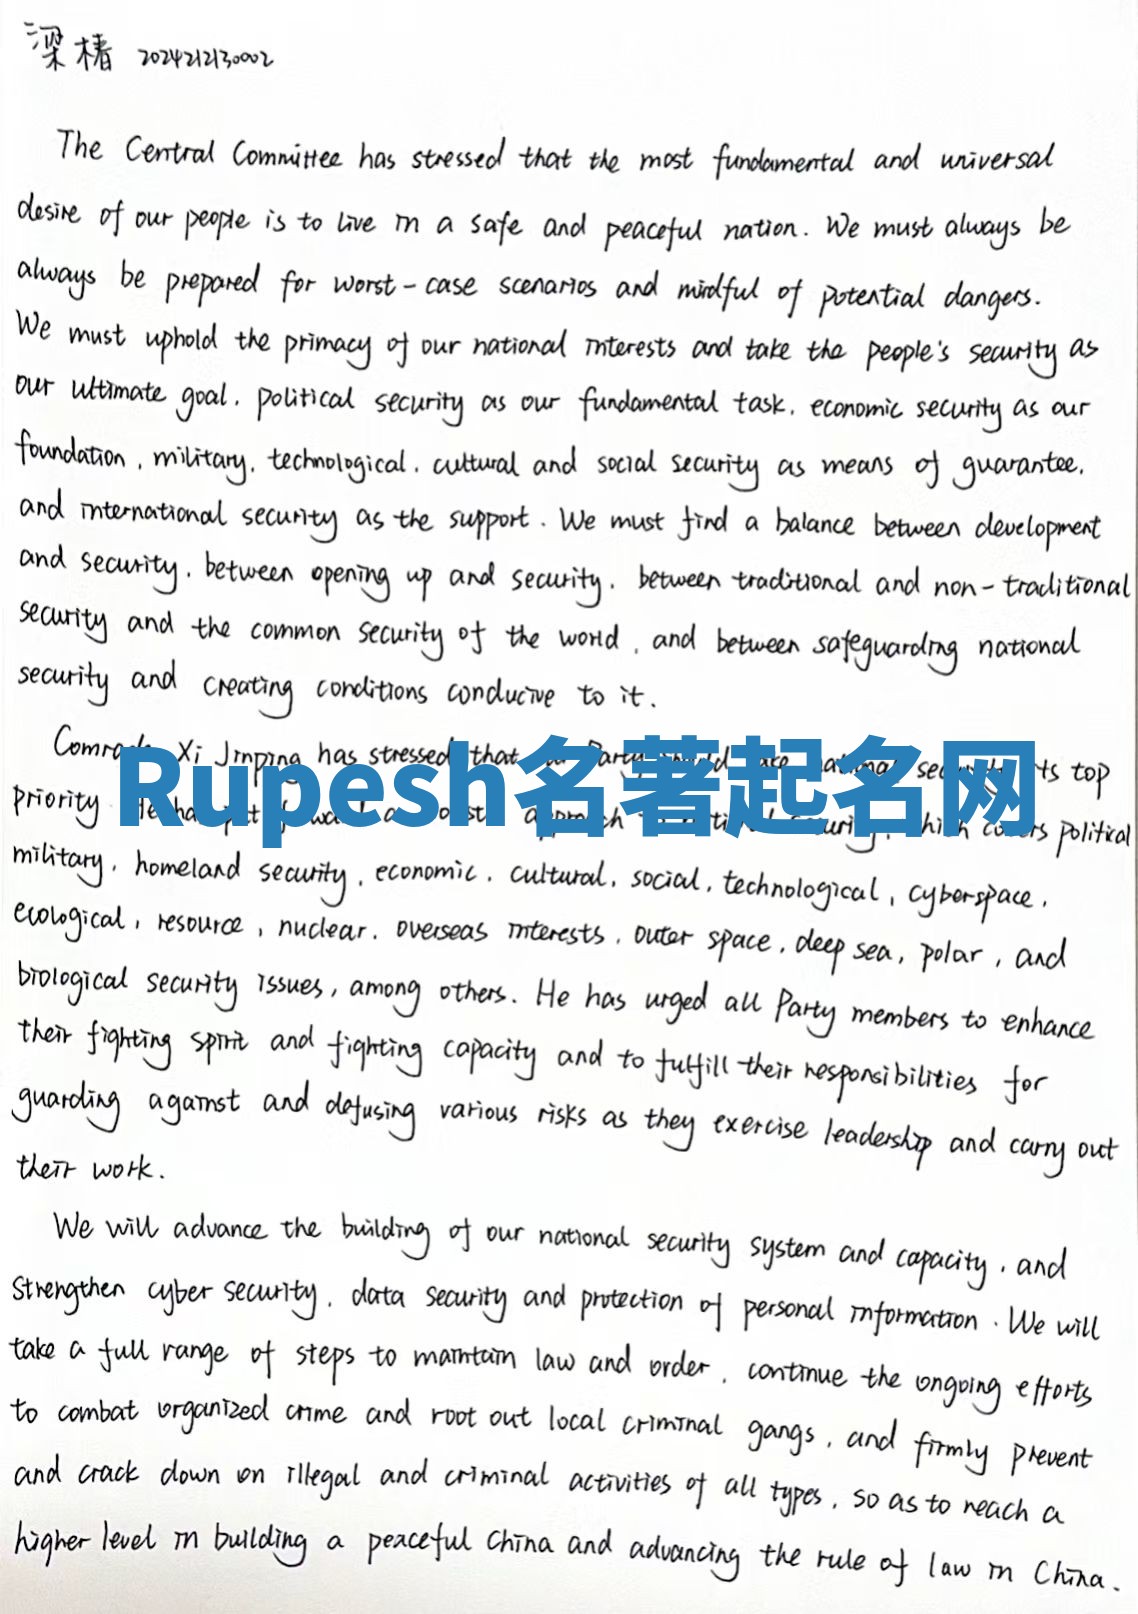 梁椿 2024212130002
The Central Committee has stressed that the most fundamental and universal
desire of our people is to live in a safe and peaceful nation. We must always be
always be prepared for worst-case scenarios and mindful of potential dangers.
We must uphold the primacy of our national interests and take the people's security as
our ultimate goal, political security as our fundamental task, economic security as our
foundation, military, technological, cultural and social security as means of guarantee,
and international security as the support. We must find a balance between development
and security, between opening up and security, between traditional and non-traditional
security and the common security of the world, and between safeguarding national
security and creating conditions conducive to it.
Comrade Xi Jinping has stressed that our Party should take national security its top
Rupesh名著起名网
priority He has put forward a holistic approach to national security, which covers political
military, homeland security, economic, cultural, social, technological, cyberspace,
ecological, resource, nuclear, overseas interests, outer space, deep sea, polar, and
biological security issues, among others. He has urged all Party members to enhance
their fighting spirit and fighting capacity and to fulfill their responsibilities for
guarding against and defusing various risks as they exercise leadership and carry out
their work.
We will advance the building of our national security system and capacity, and
strengthen cyber security, data security and protection of personal information. We will
take a full range of steps to maintain law and order, continue the ongoing efforts
to combat organized crime and root out local criminal gangs, and firmly prevent
and crack down on illegal and criminal activities of all types, so as to reach a
higher level in building a peaceful China and advancing the rule of law in China.